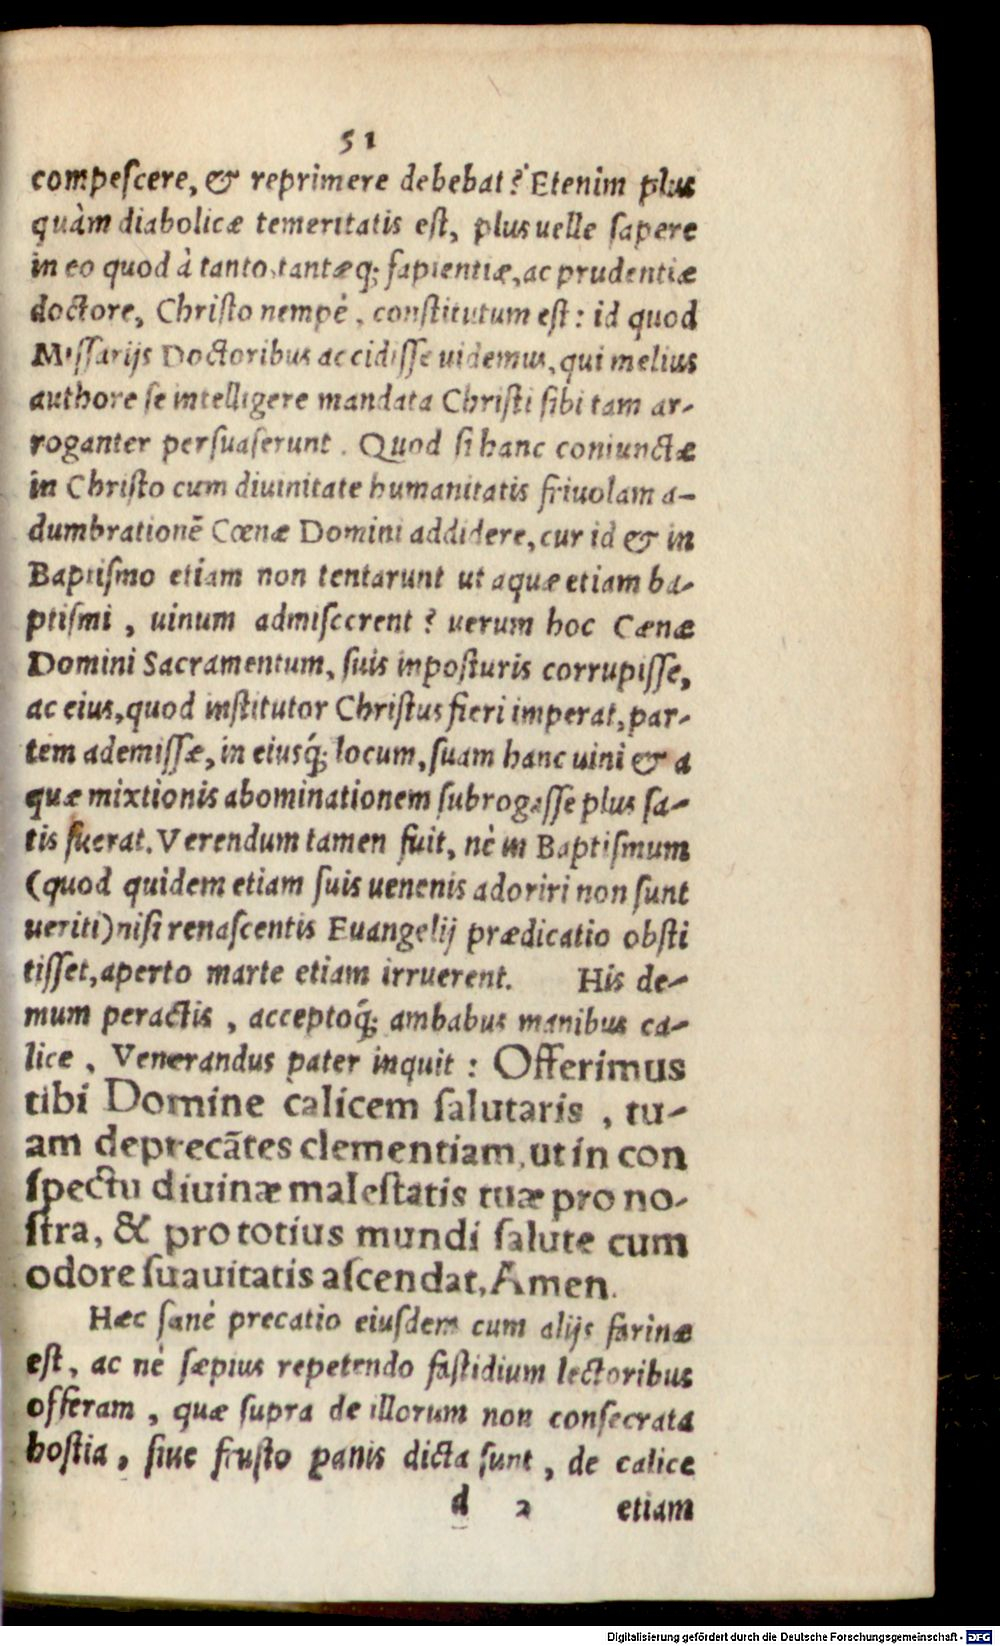 51
compeſcere, & reprimere debebat? Etenim plus
quàm diabolicæ temeritatis eſt, plus uelle ſapere
in eo quod à tanto, tantæq; ſapientiæ, ac prudentiæ
doctore, Chriſto nempè, conſtitutum eſt: id quod
Miſſarijs Doctoribus accidiſſe uidemus, qui melius
authore ſe intelligere mandata Chriſti ſibi tam ar-
roganter perſuaſerunt. Quod ſi hanc coniunctæ
in Chriſto cum diuinitate humanitatis friuolam a-
dumbrationē Cœnæ Domini addidere, cur id & in
Baptiſmo etiam non tentarunt ut aquæ etiam ba-
ptiſmi, uinum admiſcerent? uerum hoc Cænæ
Domini Sacramentum, ſuis inpoſturis corrupiſſe,
ac eius, quod inſtitutor Chriſtus fieri imperat, par-
tem ademiſſæ, in eiusq́; locum, ſuam hanc uini & a
quæ mixtionis abominationem ſubrogaſſe plus ſa-
tis fuerat. Verendum tamen fuit, nè in Baptiſmum
(quod quidem etiam ſuis uenenis adoriri non ſunt
ueriti) niſi renaſcentis Euangelij prædicatio obſti
tiſſet, aperto marte etiam irruerent. His de-
mum peractis, acceptoq́; ambabus manibus ca-
lice, Venerandus pater inquit: Offerimus
tibi Domine calicem ſalutaris, tu-
am deprecātes clementiam, ut in con
ſpectu diuinæ maIeſtatis tuæ pro no-
ſtra, & pro totius mundi ſalute cum
odore ſuauitatis aſcendat, Amen.
Hæc ſanè precatio eiuſdem cum alijs farinæ
eſt, ac nè ſæpius repetendo faſtidium lectoribus
offeram, quæ ſupra de illorum non conſecrata
hoſtia, ſiue fruſto panis dicta ſunt, de calice
d 2 etiam
Digitalisierung gefördert durch die Deutsche Forschungsgemeinschaft - DFG